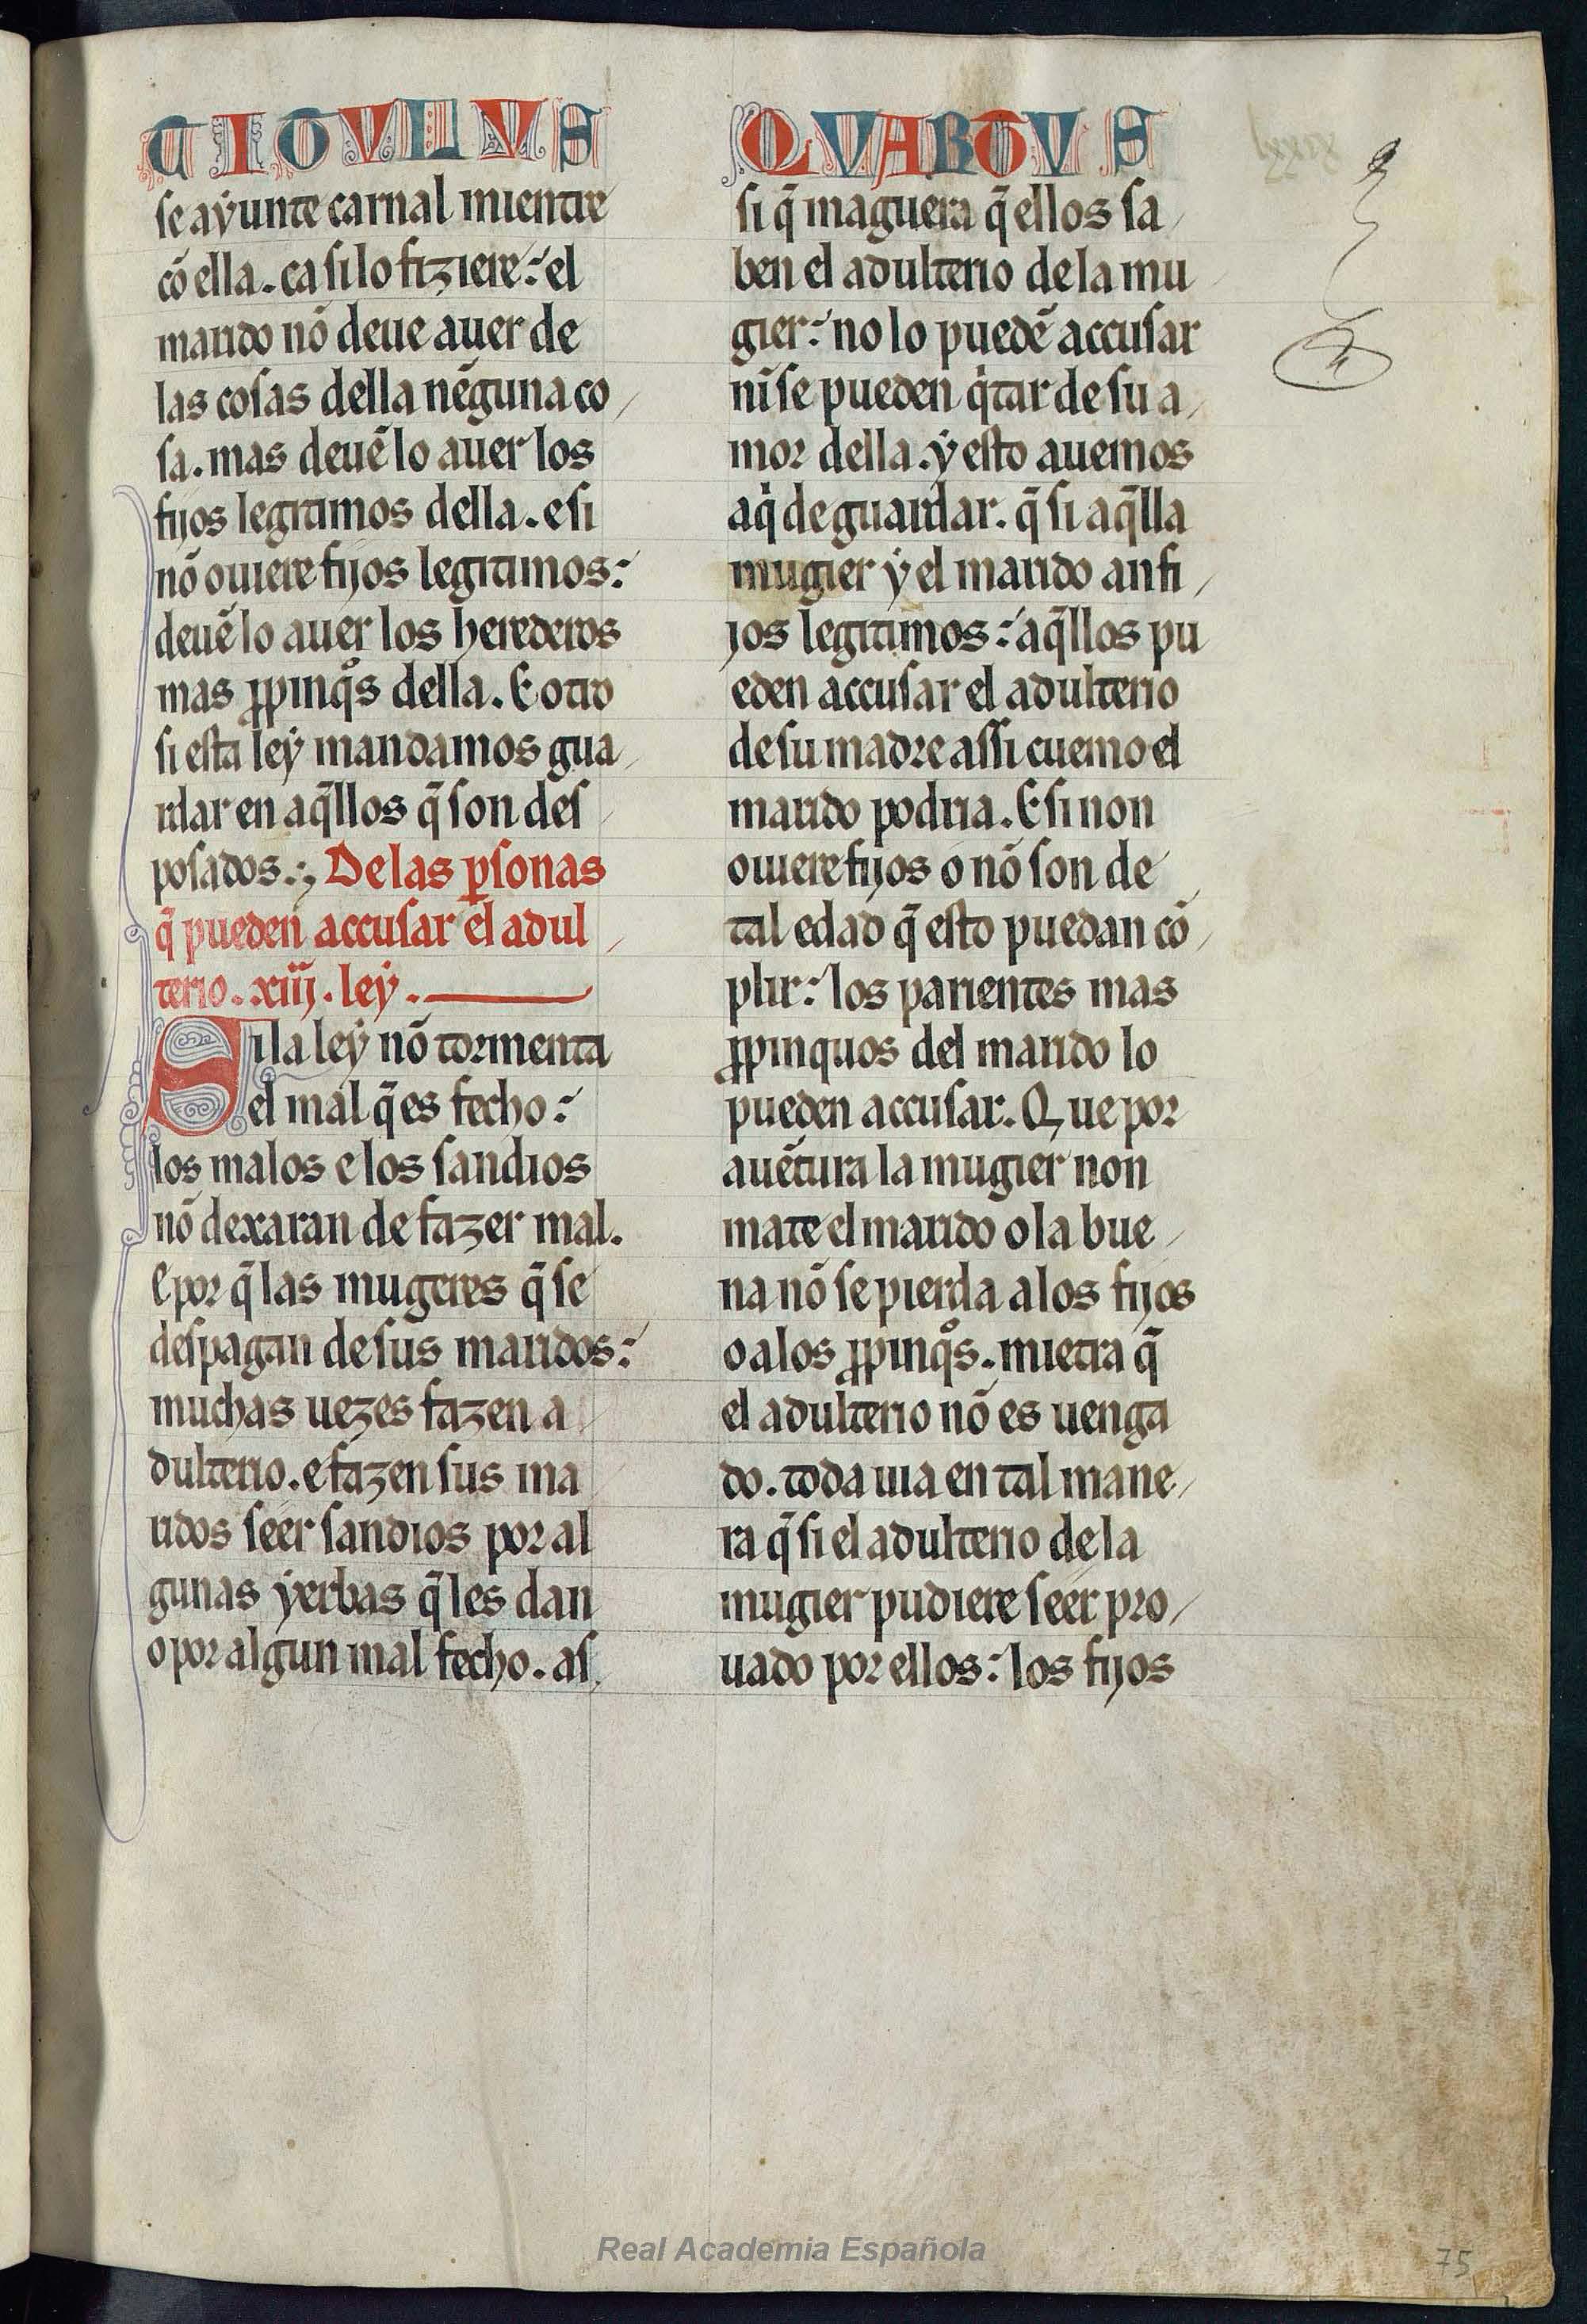 TITVLVS
se aẏunte carnal mientre
cō ella. ca si lo fiziere: el
marido nō deue auer de
las cosas della nēguna co
sa. mas deuē lo auer los
fijos legitimos della. e si
nō ouiere fijos legitimos:
deuē lo auer los herederos
mas ꝓpinq̊s della. E otro
si esta leẏ mandamos gua
rdar en aq̄llos q̄ son des
posados.:, De las ꝑsonas
q̄ pueden accusar el adul
terio. xiij. leẏ.
Si la leẏ nō tormenta
el mal q̄ es fecho:
los malos e los sandios
nō dexaran de fazer mal.
E por q̄ las mugeres q̄ se
despagan de sus maridos:
muchas uezes fazen a
dulterio. e fazen sus ma
ridos seer sandios por al
gunas ẏerbas q̄ les dan
o por algun mal fecho. as
QVARTVS
si q̄ maguera q̄ ellos sa
ben el adulterio de la mu
gier: no lo puedē accusar
nī se pueden q̇tar de su a
mor della. ẏ esto auemos
aq̇ de guardar. q̄ si aq̄lla
mugier ẏ el marido an fi
jos legitimos: aq̄llos pu
eden accusar el adulterio
de su madre assi cuemo el
marido podria. E si non
ouiere fijos o nō son de
tal edad q̄ esto puedan cō
plir: los parientes mas
ꝓpinquos del marido lo
pueden accusar. Que por
auētura la mugier non
mate el marido o la bue
na nō se pierda a los fijos
o a los ꝓpinq̊s. mietra q̄
el adulterio nō es uenga
do. toda uia en tal mane
ra q̄ si el adulterio de la
mugier pudiere seer pro
uado por ellos: los fijos
Real Academia Española
75